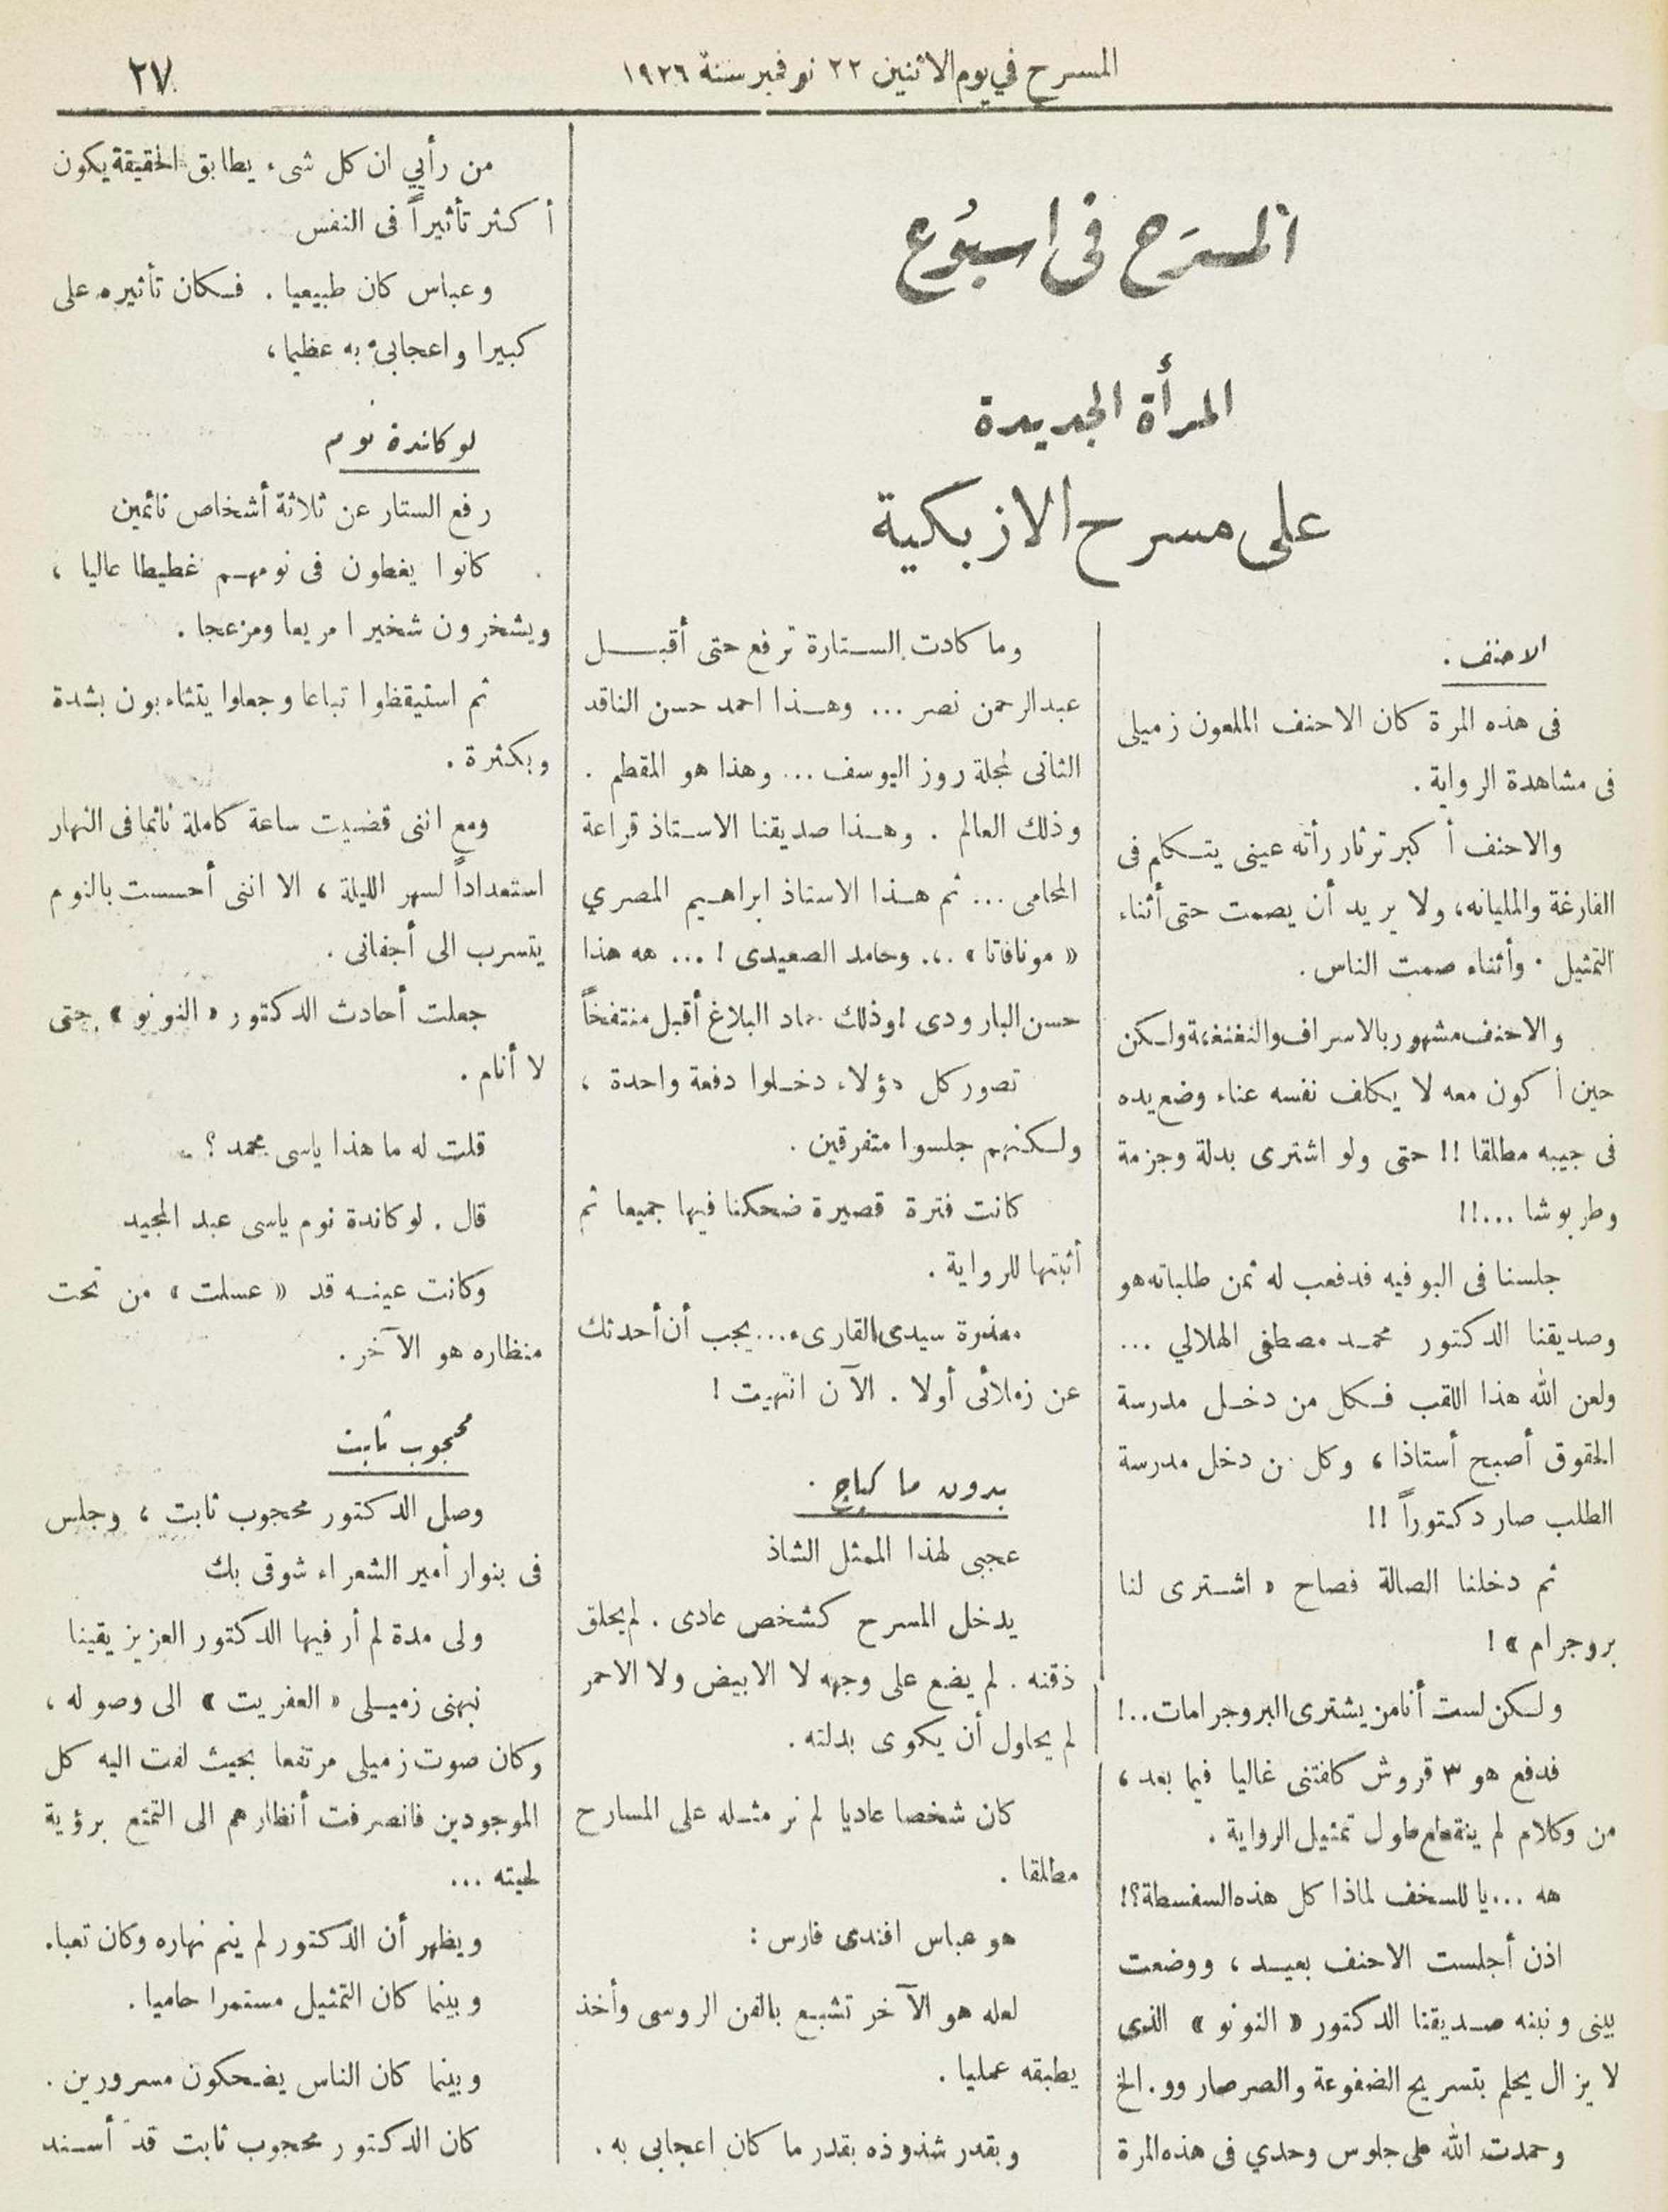 المسرح في يوم الاثنين ٢٢ نوفمبر سنة ١٩٢٦
٢٧
المسرح فى اسبوع
المرأة الجديدة
على مسرح الازبكية
الاحنف .
فى هذه المرة كان الاحنف الملعون زميلى
فى مشاهدة الرواية .
والاحنف أكبر ثرثار رأته عينى يتكلم فى
الفارغة والمليانه، ولا يريد أن يصمت حتى أثناء
التمثيل . وأثناء صمت الناس .
والاحنف مشهور بالاسراف والنغنغة ولكن
حين أكون معه لا يكلف نفسه عناء وضع يده
فى جيبه مطلقا !! حتى ولو اشترى بدلة وجزمة
وطربوشا ...!!
جلسنا فى البوفيه فدفعب له ثمن طلباته هو
وصديقنا الدكتور محمد مصطفى الهلالي ...
ولعن الله هذا اللقب فكل من دخل مدرسة
الحقوق أصبح أستاذا ، وكل من دخل مدرسة
الطلب صار دكتوراً !!
ثم دخلنا الصالة فصاح « اشترى لنا
بروجرام » !
ولكن لست أنا من يشترى البروجرامات..!
فدفع هو ٣ قروش كلفتنى غاليا فيما بعد ،
من وكلام لم ينقطع طول تمثيل الرواية .
هه ... يا للسخف لماذا كل هذه السفسطة؟!
اذن أجلست الاحنف بعيد ، ووضعت
بينى ونبنه صديقنا الدكتور « النونو » الذى
لا يزال يحلم بتسريح الضفوعة والصرصار وو. الخ
وحمدت الله على جلوس وحدي فى هذه المرة
وما كادت الستارة ترفع حتى أقبل
عبد الرحمن نصر ... وهذا احمد حسن الناقد
الثانى لمجلة روز اليوسف ... وهذا هو المقطم .
وذلك العالم . وهذا صديقنا الاستاذ قراعة
المحامى ... ثم هذا الاستاذ ابراهيم المصري
« مونافاتا » ... وحامد الصعيدى ! ... هه هذا
حسن البارودى ! وذلك حماد البلاغ أقبل منتفخاً
تصور كل هؤلاء دخلوا دفعة واحدة ،
ولكنهم جلسوا متفرقين .
كانت فترة قصيرة ضحكنا فيها جميعا ثم
أثبتها للرواية .
معذرة سيدى القارىء... يجب أن أحدثك
عن زملائى أولا . الآن انتهيت !
بدون ماكياج .
عجبى لهذا الممثل الشاذ
يدخل المسرح كشخص عادى . لم يحلق
ذقنه . لم يضع على وجهه لا الابيض ولا الاحمر
لم يحاول أن يكوى بدلته .
كان شخصا عاديا لم نر مثله على المسارح
مطلقا .
هو عباس افندى فارس :
لعله هو الآخر تشبع بالفن الروسى وأخذ
يطبقه عمليا .
وبقدر شذوذه بقدر ما كان اعجابى به .
من رأيي ان كل شىء يطابق الحقيقة يكون
أكثر تأثيراً فى النفس
وعباس كان طبيعيا . فكان تأثيره على
كبيرا واعجابى به عظيما،
لوكاندة نوم
رفع الستار عن ثلاثة أشخاص نائمين
كانوا يغطون فى نومهم غطيطا عاليا ،
ويشخرون شخيرا مريعا ومزعجا .
ثم استيقظوا تباعا وجعلوا يتثاءبون بشدة
وبكثرة .
ومع اننى قضيت ساعة كاملة نائما فى النهار
استعداداً لسهر الليلة ، الا اننى أحسست بالنوم
يتسرب الى أجفانى .
جعلت أحادث الدكتور « النونو » حتى
لا أنام .
قلت له ما هذا ياسى محمد ؟
قال . لوكاندة نوم ياسى عبد المجيد
وكانت عينه قد « عسلت » من تحت
منظاره هو الآخر .
محجوب ثابت
وصل الدكتور محجوب ثابت ، وجلس
فى بنوار أمير الشعراء شوقى بك
ولى مدة لم أر فيها الدكتور العزيز يقينا
نبهنى زميلى « العفريت » الى وصوله ،
وكان صوت زميلى مرتفعا بحيث لفت اليه كل
الموجودين فانصرفت أنظارهم الى التمتع برؤية
لحيته ...
ويظهر أن الدكتور لم ينم نهاره وكان تعبا.
وبينما كان التمثيل مستمرا حاميا .
وبينما كان الناس يضحكون مسرورين .
كان الدكتور محجوب ثابت قد أسند